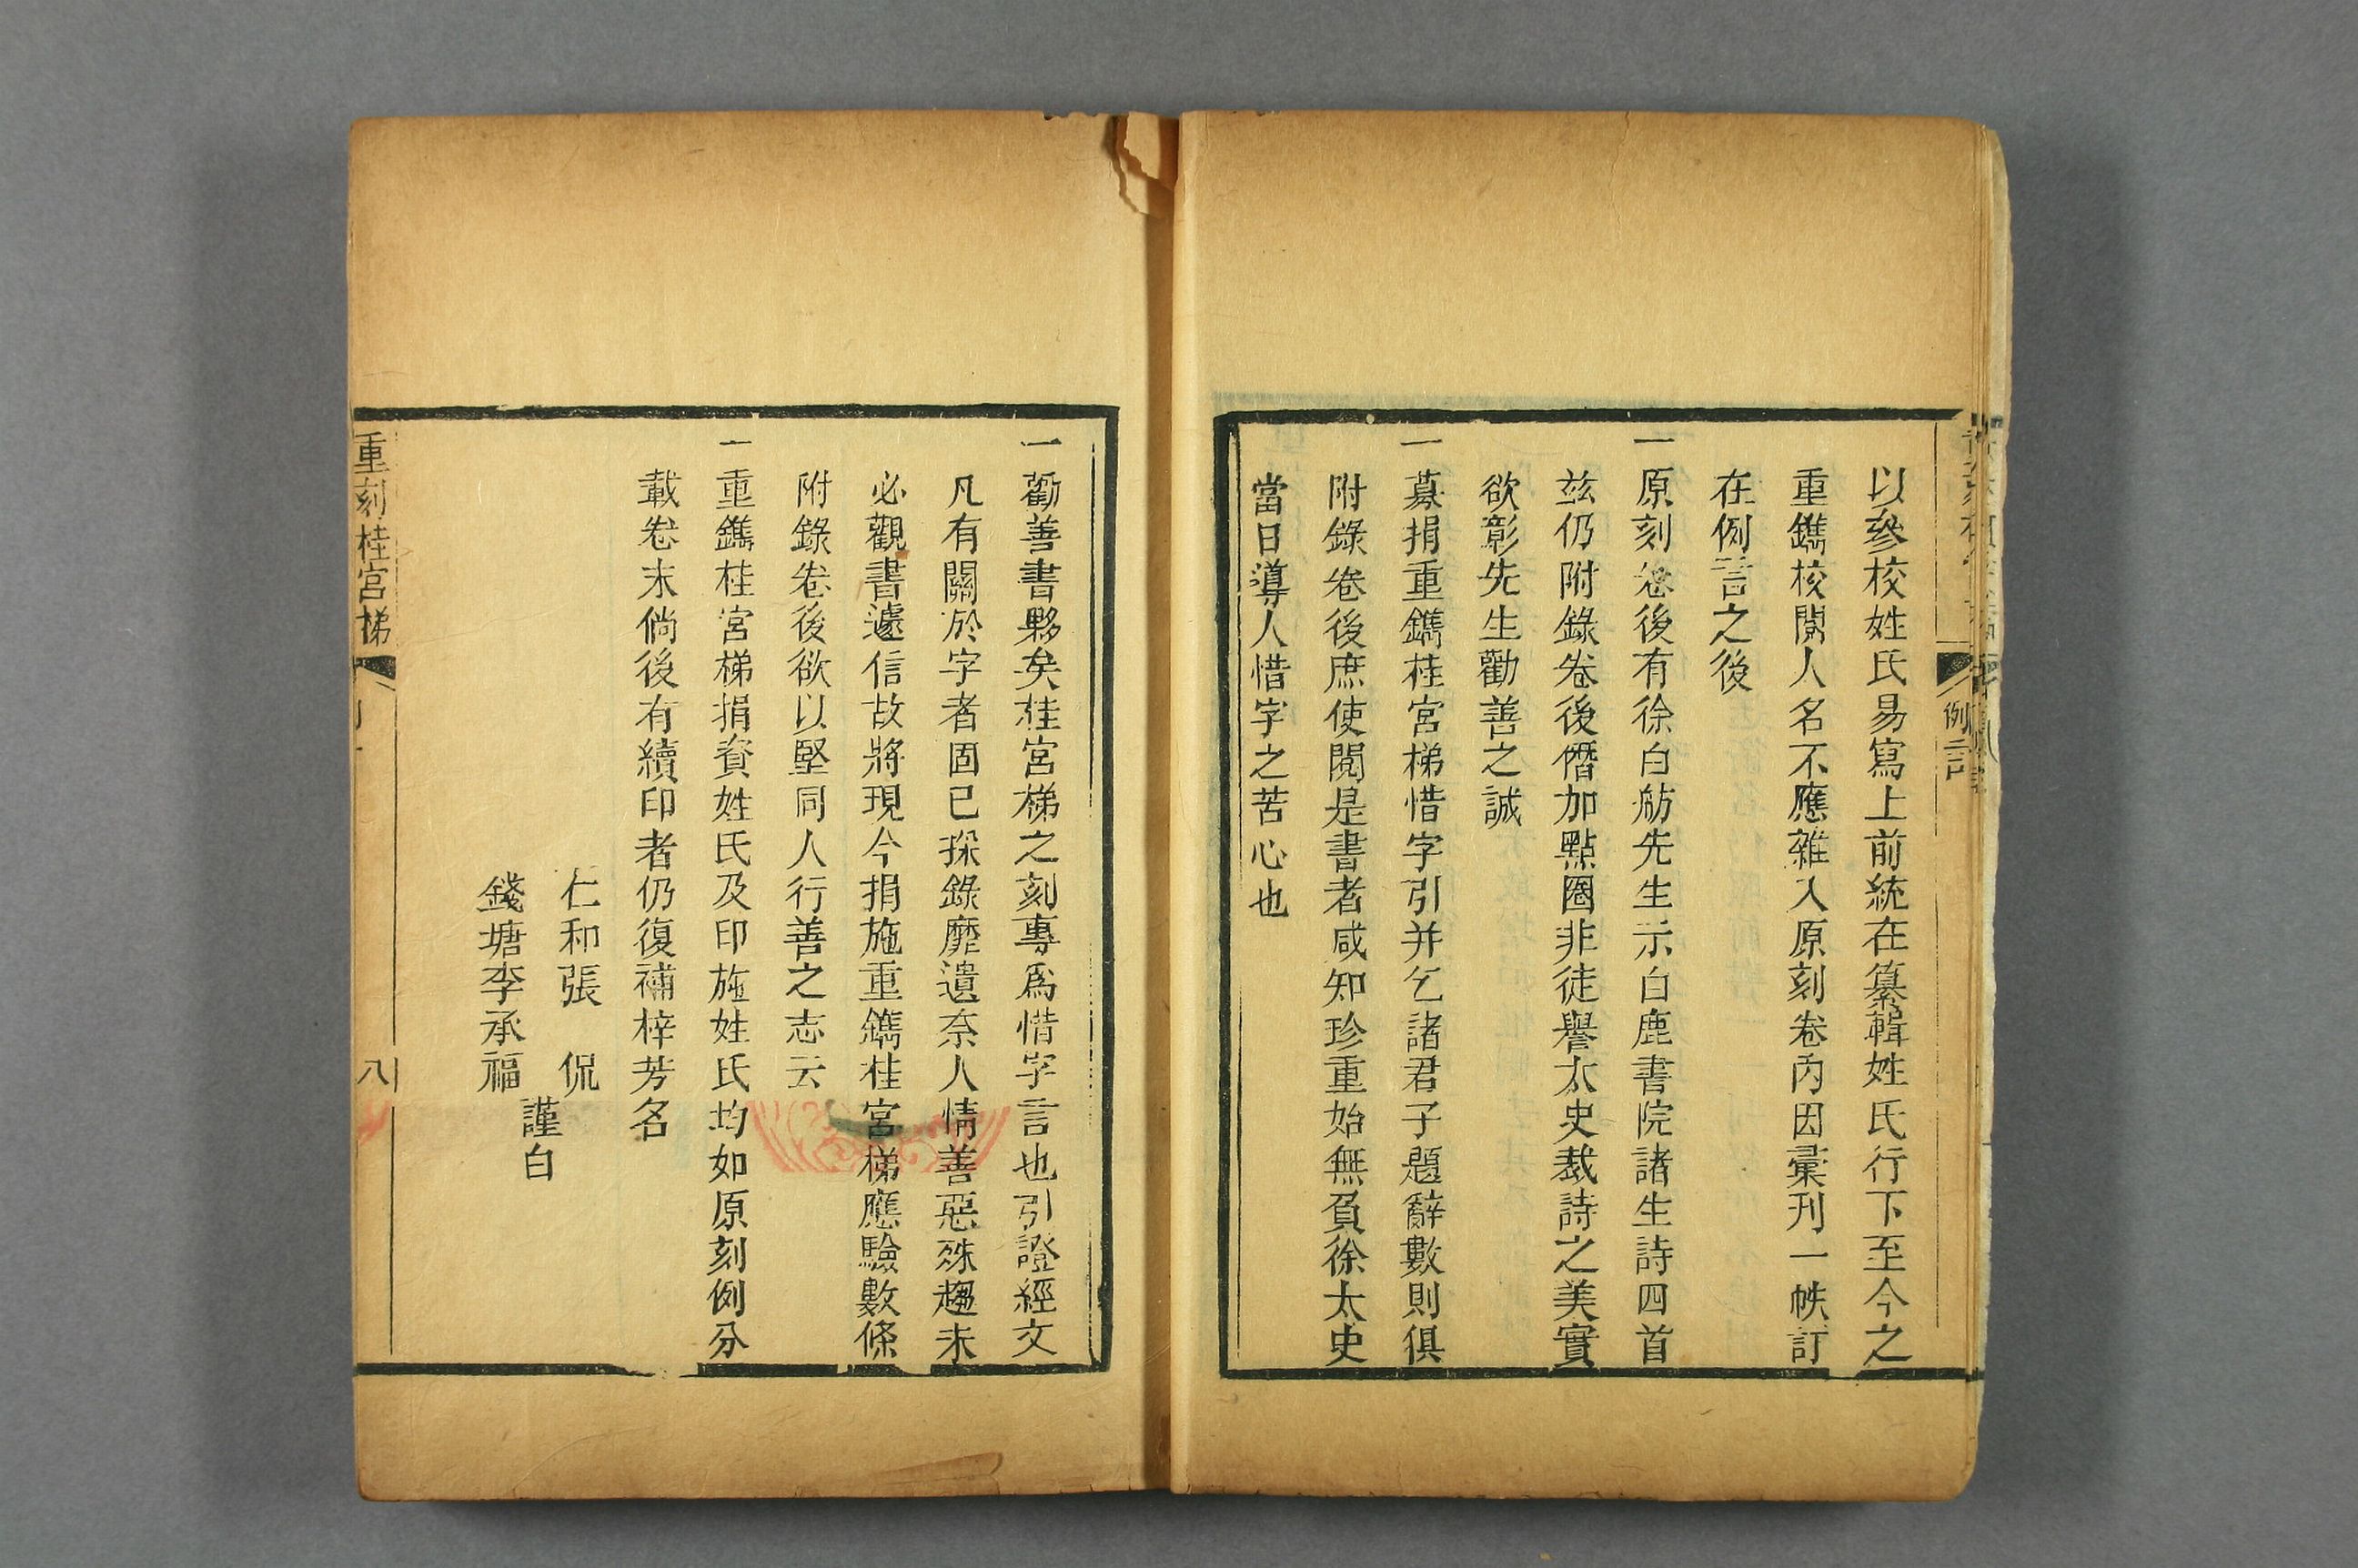 以參校姓氏易寫上前統在纂輯姓氏行下至今之
重鐫校閱人名不應雜入原刻卷內因彙刊一帙訂
在例言之後
一原刻卷後有徐白舫先生示白鹿書院諸生詩四首
茲仍附錄卷後僭加點圈非徒譽太史裁詩之美實
欲彰先生勸善之誠
一募捐重鐫桂宮梯惜字引并乞諸君子題辭數則俱
附錄卷後庶使閱是書者咸知珍重始無負徐太史
當日導人惜字之苦心也
一勸善書夥矣桂宮梯之刻專爲惜字言也引證經文
凡有關於字者固已採錄靡遺奈人情善惡殊趨未
必觀書遽信故將現今捐施重鐫桂宮梯應驗數條
附錄卷後欲以堅同人行善之志云
一重鐫桂宮梯捐資姓氏及印施姓氏均如原刻例分
載卷末倘後有續印者仍復補梓芳名
仁和張 侃
錢塘李承福
謹白
重刻桂宮梯
八
例言